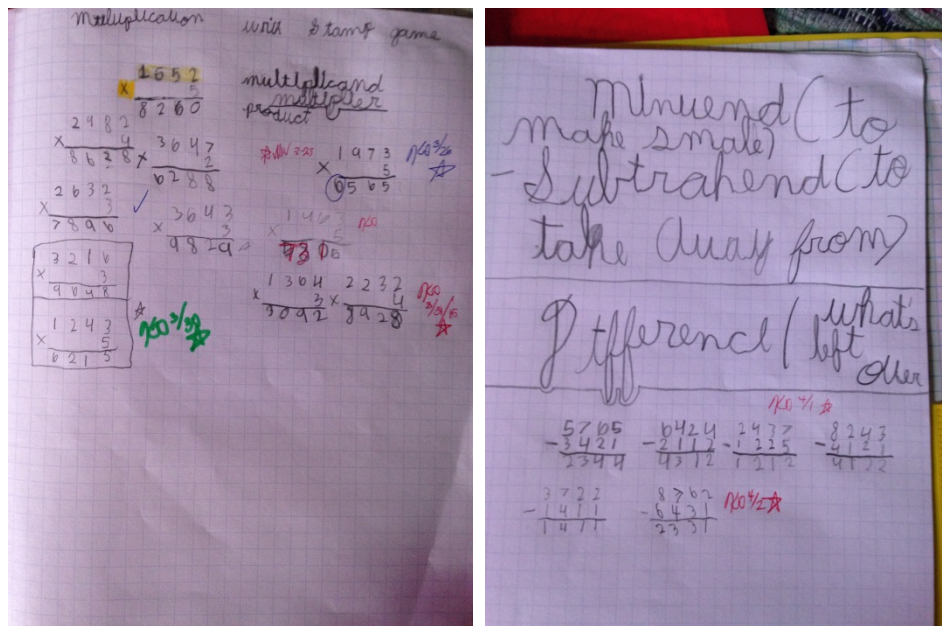 Multiplication with Stamp game
1652
× 5
8260
multiplicand
multiplier
product
2482
× 4
8628
3647
× 2
6288
1973
× 5
6565
3/26
2632
× 3
7896
3643
× 3
9829
3216
× 3
9648
1364
× 3
3092
2232
× 4
8928
1243
× 5
6215
3/30
Minuend (to
make small)
- Subtrahend (to
take away from)
Difference (what's
left
over
4/1
5765
- 3421
2344
6424
- 2112
4312
2437
- 1225
1212
8243
- 4121
4122
3722
- 1411
1411
8762
- 6431
2331
4/2